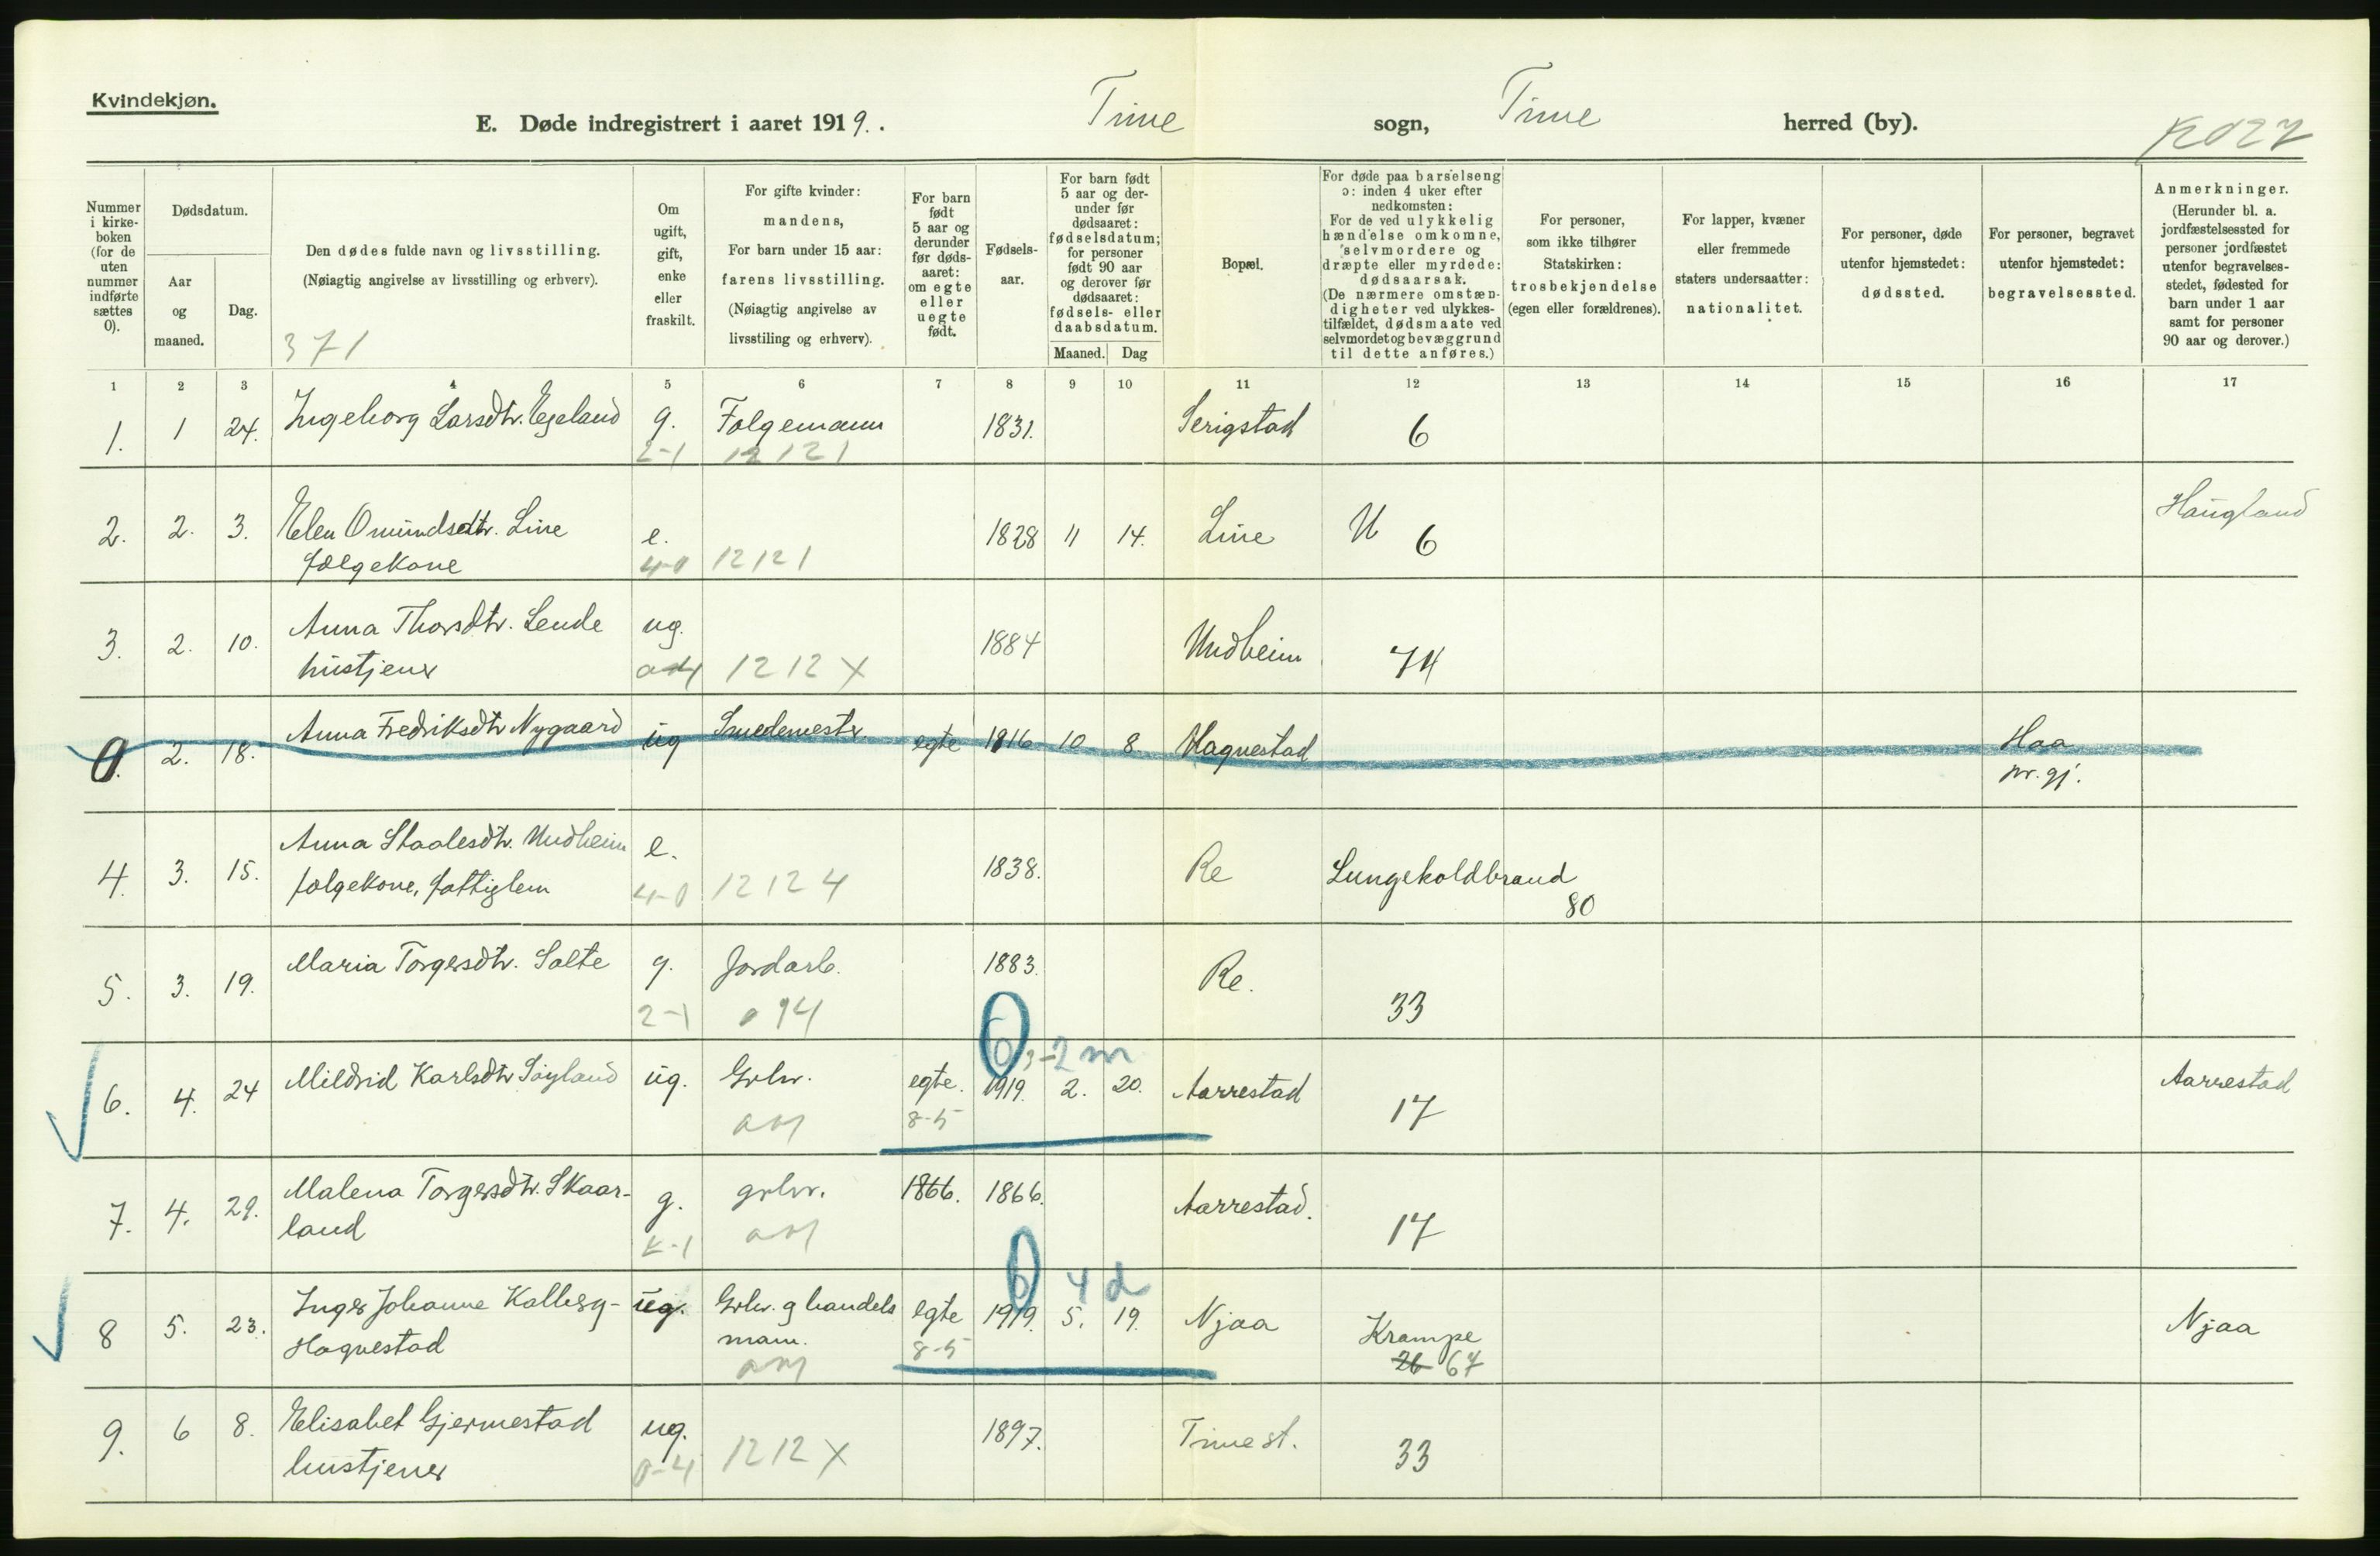 Kvindekjøn.
E. Døde indregistrert i aaret 1919. Time sogn, Time herred (by).
Nummer i kirke-boken (for de uten nummer indførte sættes 0).
Dødsdatum.
Aar og maaned.
Dag.
Den dødes fulde navn og livsstilling.
(Nøiagtig angivelse av livsstilling og erhverv).
371
Om ugift, gift, enke eller fraskilt.
For gifte kvinder: mandens,
For barn under 15 aar: farens livsstilling.
(Nøiagtig angivelse av livsstiling og erhverv).
For barn født 5 aar og derunder før døds-aaret: om egte eller uegte født.
Fødsels-aar.
For barn født 5 aar og der-under før dødsaaret: fødselsdatum; for personer født 90 aar og derover før dødsaaret: fødsels- eller daabsdatum.
Maaned. Dag
Bopæl.
For døde paa barselseng ɔ: inden 4 uker efter nedkomsten:
For de ved ulykkelig hændelse omkomne, selvmordere og dræpte eller myrdede: dødsaarsak.
(De nærmere omstæn-digheter ved ulykkes-tilfældet, dødsmaate ved selvmordet og bevæggrund til dette anføres.)
For personer, som ikke tilhører Statskirken: trosbekjendelse (egen eller forældrenes).
For lapper, kvæner eller fremmede staters undersaatter: nationalitet.
For personer, døde utenfor hjemstedet: dødssted.
For personer, begravet utenfor hjemstedet: begravelsessted.
Anmerkninger.
(Herunder bl. a. jordfæstelsessted for personer jordfæstet utenfor begravelses-stedet, fødested for barn under 1 aar samt for personer 90 aar og derover.)
1 2 3 4 5 6 7 8 9 10 11 12 13 14 15 16 17
1. 1 24. Ingeborg Larsdtr. Egeland g. Folgemann 1831. Serigstad 6
2-1 12121
2. 2. 3. Elen Omundsdtr. Line e. 1828 11 14. Line U 6 Haugland
følgekone 4-0 12121
3. 2. 10. Anna Thorsdtr. Lende ug. 1884 Undheim 74
hustjener 1212X
0. 2. 18. Anna Fredriksdtr Nygaard ug Smedemester egte 1916 10 8. Hagnestad Haa
pr. gj.
4. 3. 15. Anna Staalesdtr. Undheim e. 1838. Re Lungekoldbrand
folgekone, fattiglem 4-0 12124 80
5. 3. 19. Maria Torgersdtr. Salte g. Jordarb. 1883. Re. 33
2-1
6 2 m
6. 4. 24 Mildrid Karlsdtr Søyland ug. Grbr. egte. 1919. 2. 20. Aarrestad 17 Aarrestad
8-5
7. 4. 29. Malena Torgersdtr. Skaar- g. grbr. 1866. 1866. Aarrestad. 17
land
6 4 d
8 5. 23. Inger Johanne Kalberg- ug. Grbr. g handels egte 1919. 5. 19. Njaa Krampe Njaa
Hognestad mann. 8-5 26 67
9. 6 8. Elisabet Gjermestad ug. 1897. Time st. 33
hustjener 0-4 1212X